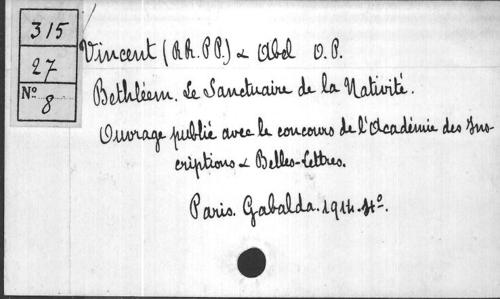 315
27
Nº 8
Vincent (RR. PP.) & Abel O. P.
Bethléem. Le Sanctuaire de la Nativité.
Ouvrage publié avec le concours de l'Académie des Ins-
criptions & Belles-Lettres.
Paris. Gabalda. 1914. 4º.